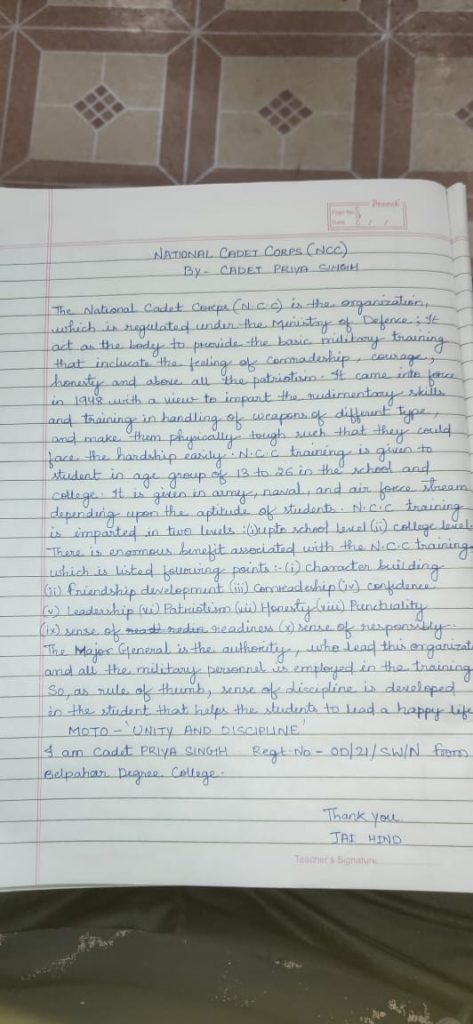 Page No.
Date
NATIONAL CADET CORPS (NCC)
By - CADET PRIYA SINGH
The National Cadet Corps (N.C.C) is the organization,
which is regulated under the Ministry of Defence; It
act as the body to provide the basic military training
that inclucate the feeling of comradeship, courage,
honesty and above all the patriotism. It came into force
in 1948 with a view to impart the rudimentary skills
and training in handling of weapons of different type,
and make them physically tough such that they could
face the hardship easily. N.C.C training is given to
student in age group of 13 to 26 in the school and
college. It is given in army, naval, and air force stream
depending upon the aptitude of students. N.C.C training
is imparted in two levels :(i) upto school level (ii) college level
There is enormous benefit associated with the N.C.C training
which is listed following points :- (i) character building
(ii) Friendship development (iii) Comradeship (iv) confidence
(v) Leadership (vi) Patriotism (vii) Honesty (viii) Punctuality
(ix) sense of readiness (x) sense of responsibly.
The Major General is the authority, who lead this organizat
and all the military personnel is employed in the training
So, as rule of thumb, sense of discipline is developed
in the student that helps the students to lead a happy life
MOTO - 'UNITY AND DISCIPLINE'
I am Cadet PRIYA SINGH Regt. No - OD/21/SW/N from
Belpahar Degree College.
Thank you
JAI HIND
Teacher's Signature